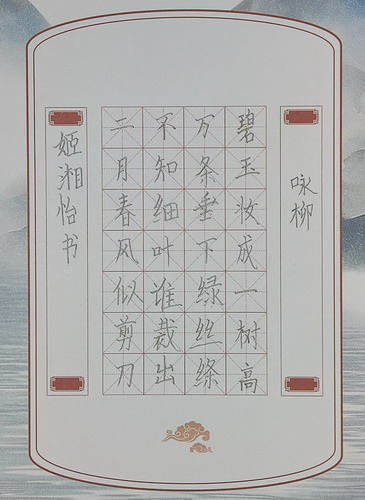 咏柳
碧玉妆成一树高
万条垂下绿丝绦
不知细叶谁裁出
二月春风似剪刀
姬湘怡书